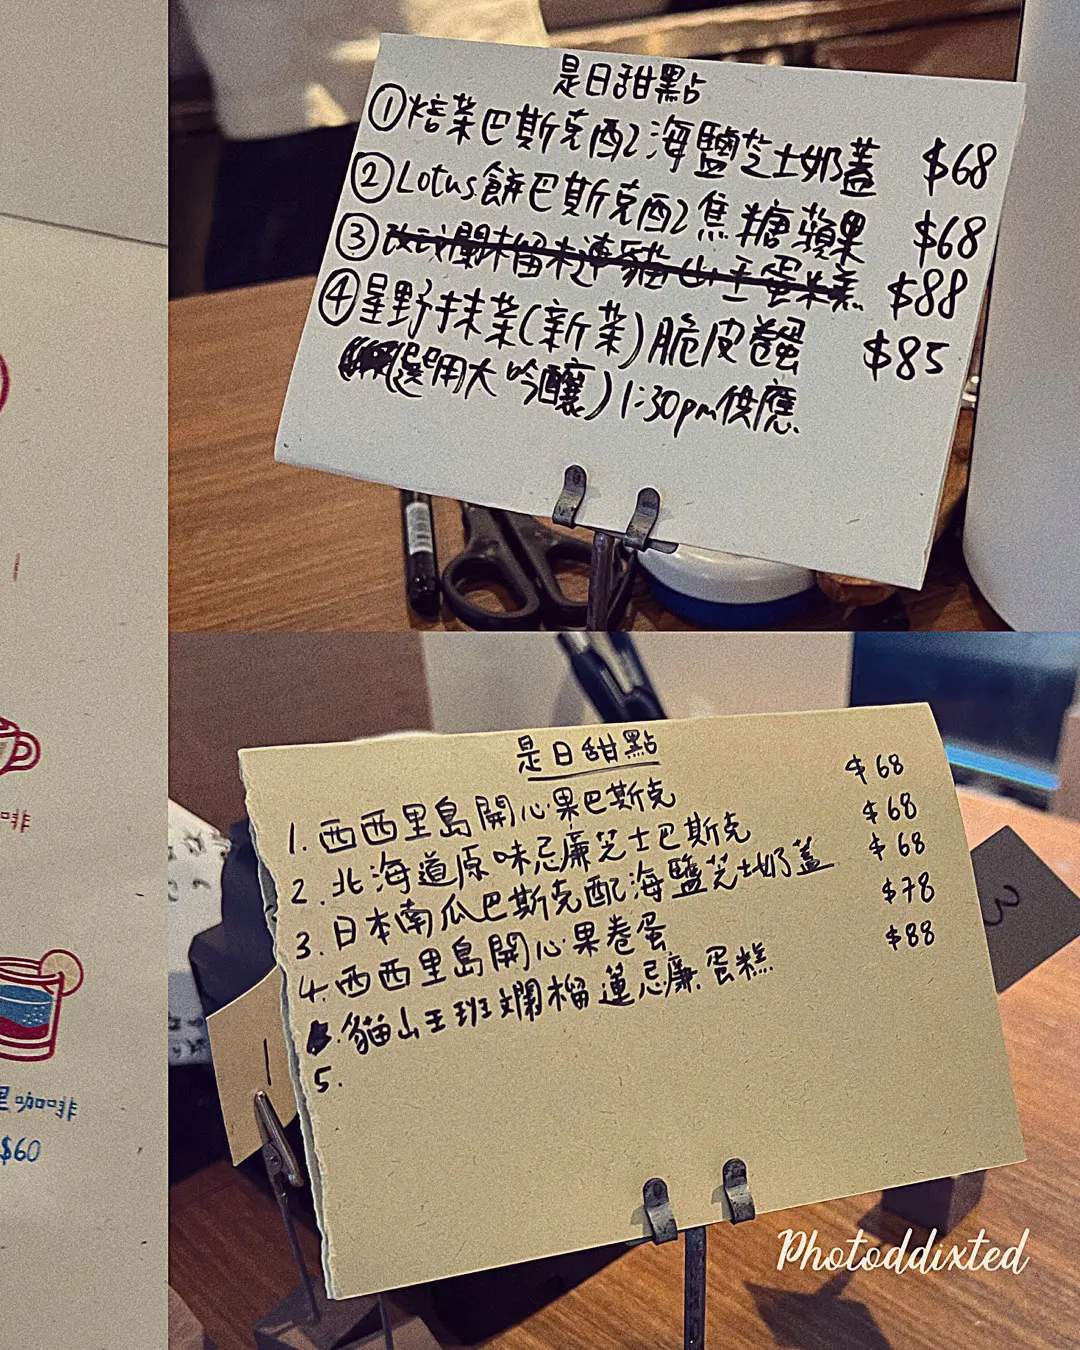 是日甜點
①焙茶巴斯克配海鹽芝士奶蓋 $68
②Lotus餅巴斯克配焦糖蘋果 $68
③ 爛榴未連貓山王蛋糕 $88
④星野抹茶(新茶)脆皮卷蛋 $85
(選用大吟釀) 1:30pm供應
是日甜點
1. 西西里島開心果巴斯克 $68
2. 北海道原味忌廉芝士巴斯克 $68
3. 日本南瓜巴斯克配海鹽芝士奶蓋 $68
4. 西西里島開心果卷蛋 $78
貓山王班爛榴蓮忌廉蛋糕 $88
5.
3
1
啡
里咖啡
$60
Photoddixted